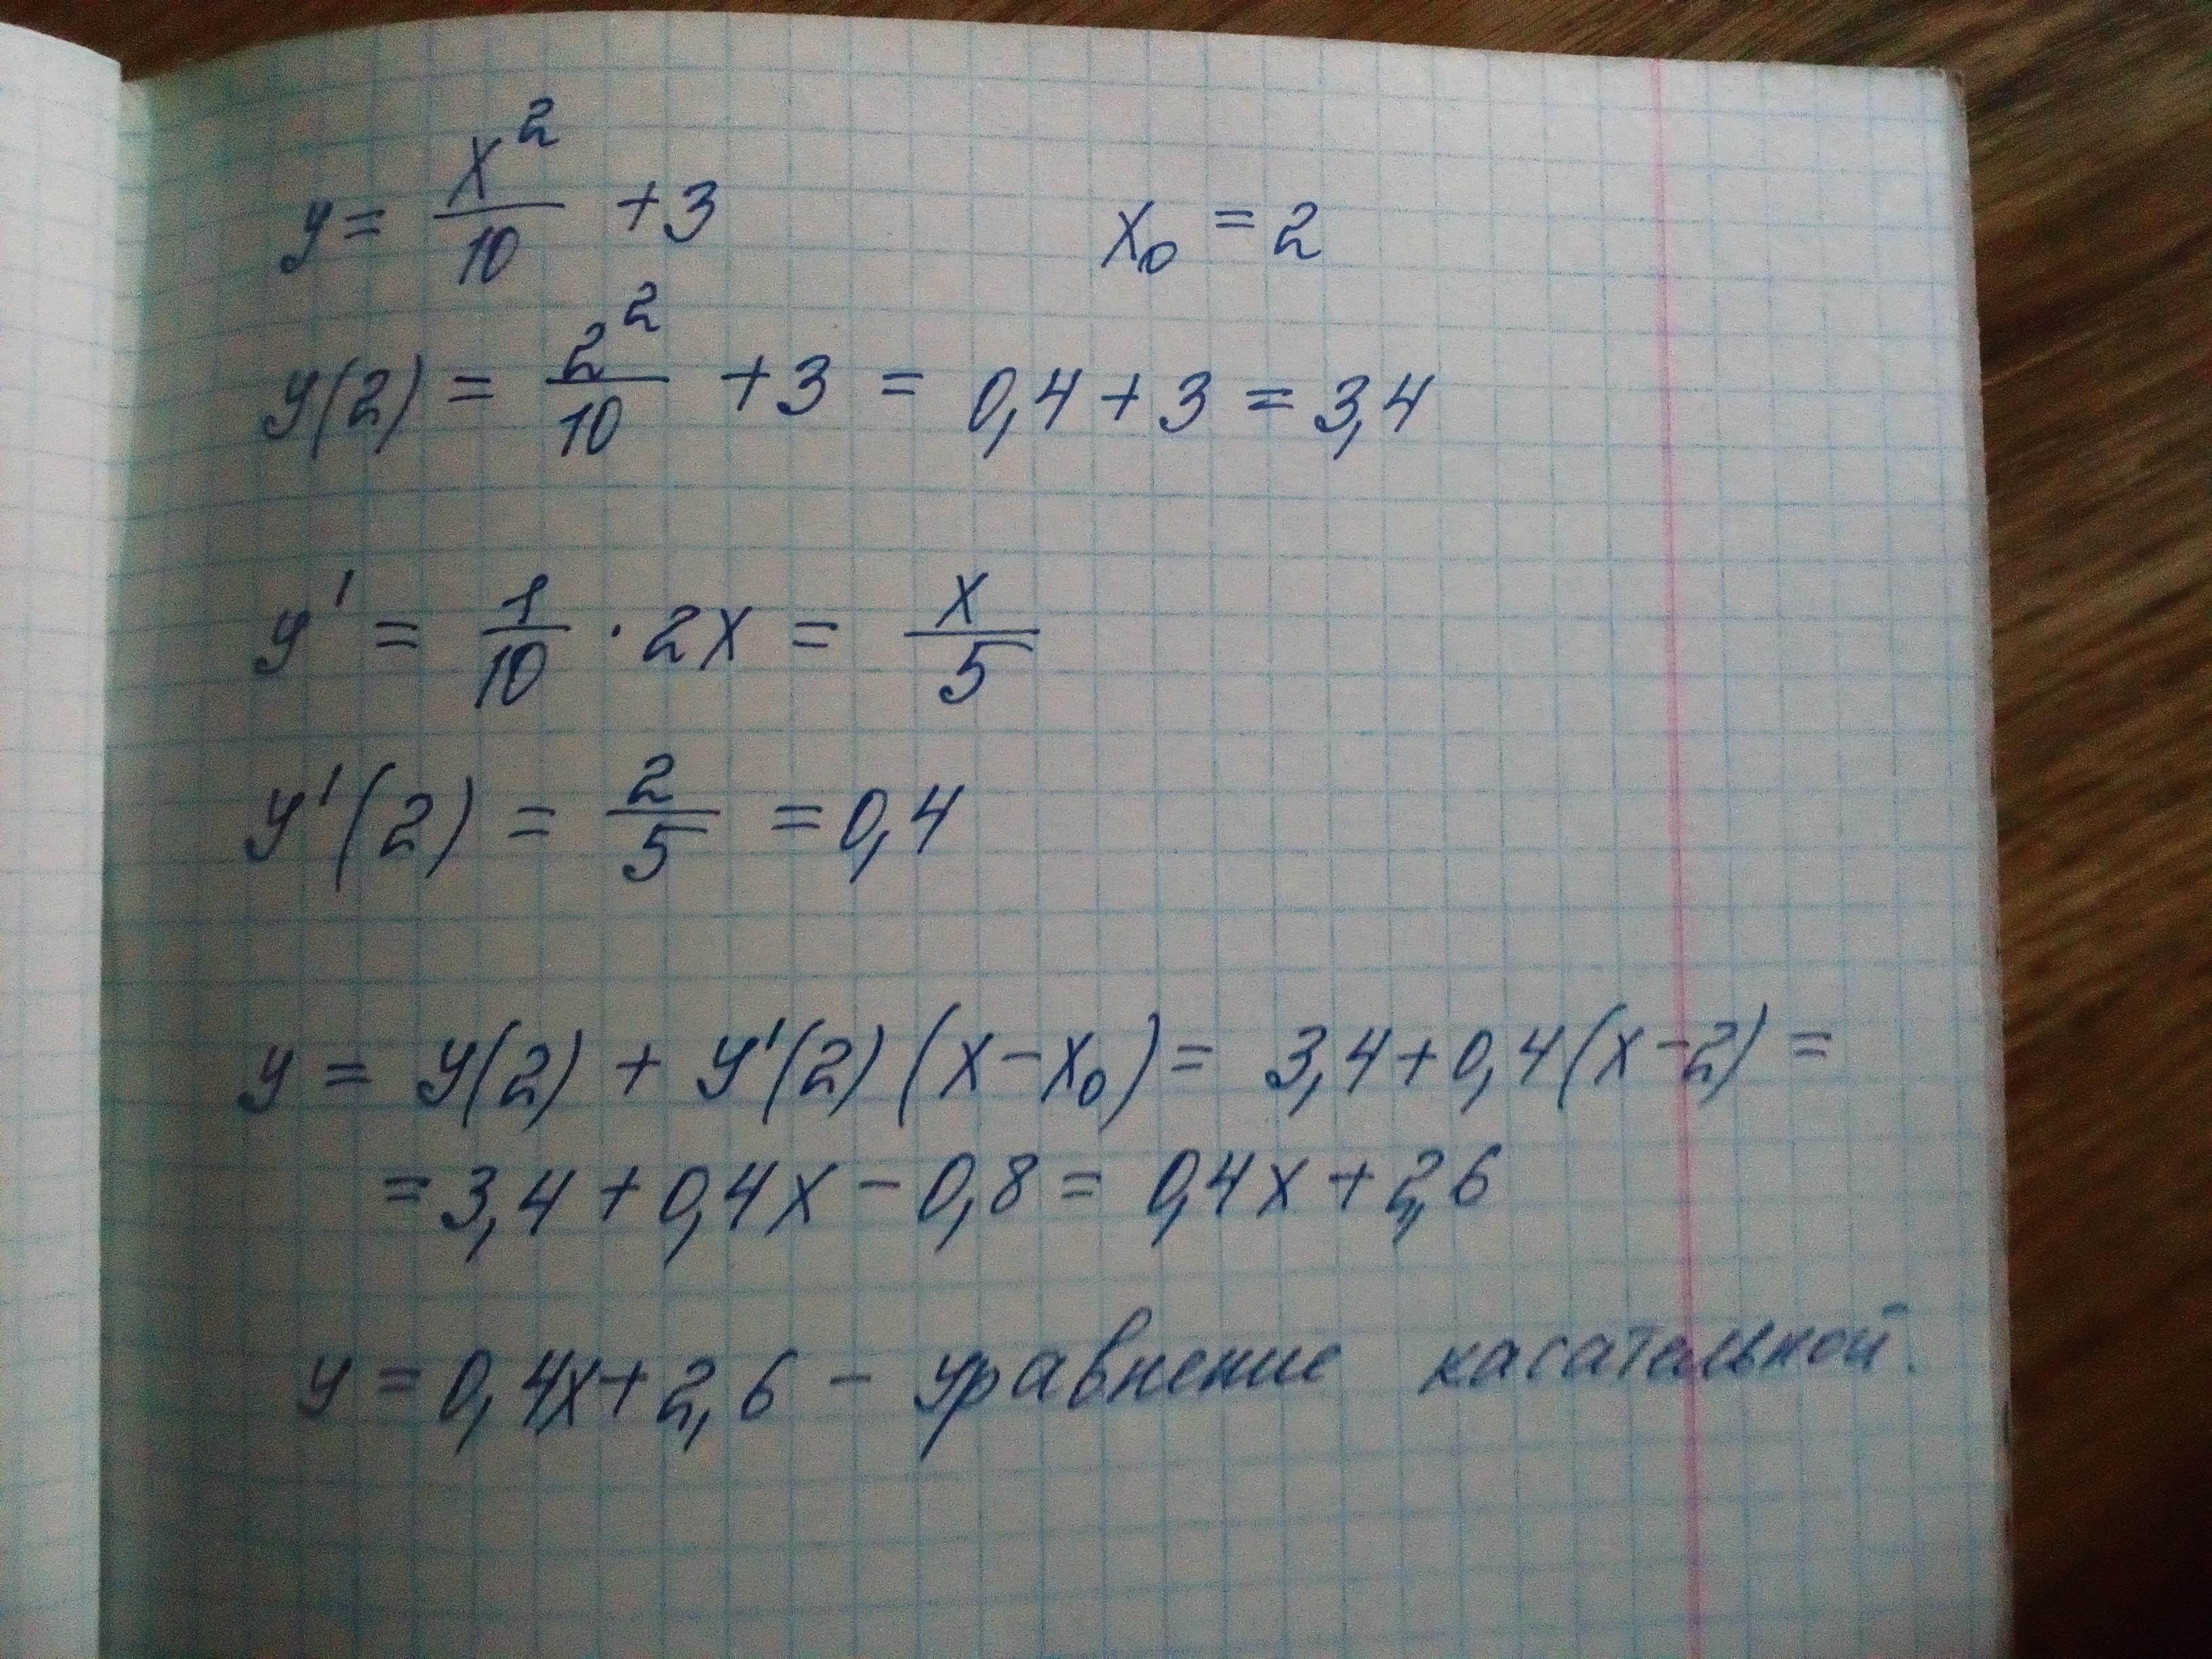 y = x²/10 + 3 x₀ = 2
y(2) = 2²/10 + 3 = 0,4 + 3 = 3,4
y' = 1/10 · 2x = x/5
y'(2) = 2/5 = 0,4
y = y(2) + y'(2) (x - x₀) = 3,4 + 0,4(x - 2) =
= 3,4 + 0,4x - 0,8 = 0,4x + 2,6
y = 0,4x + 2,6 - уравнение касательной.